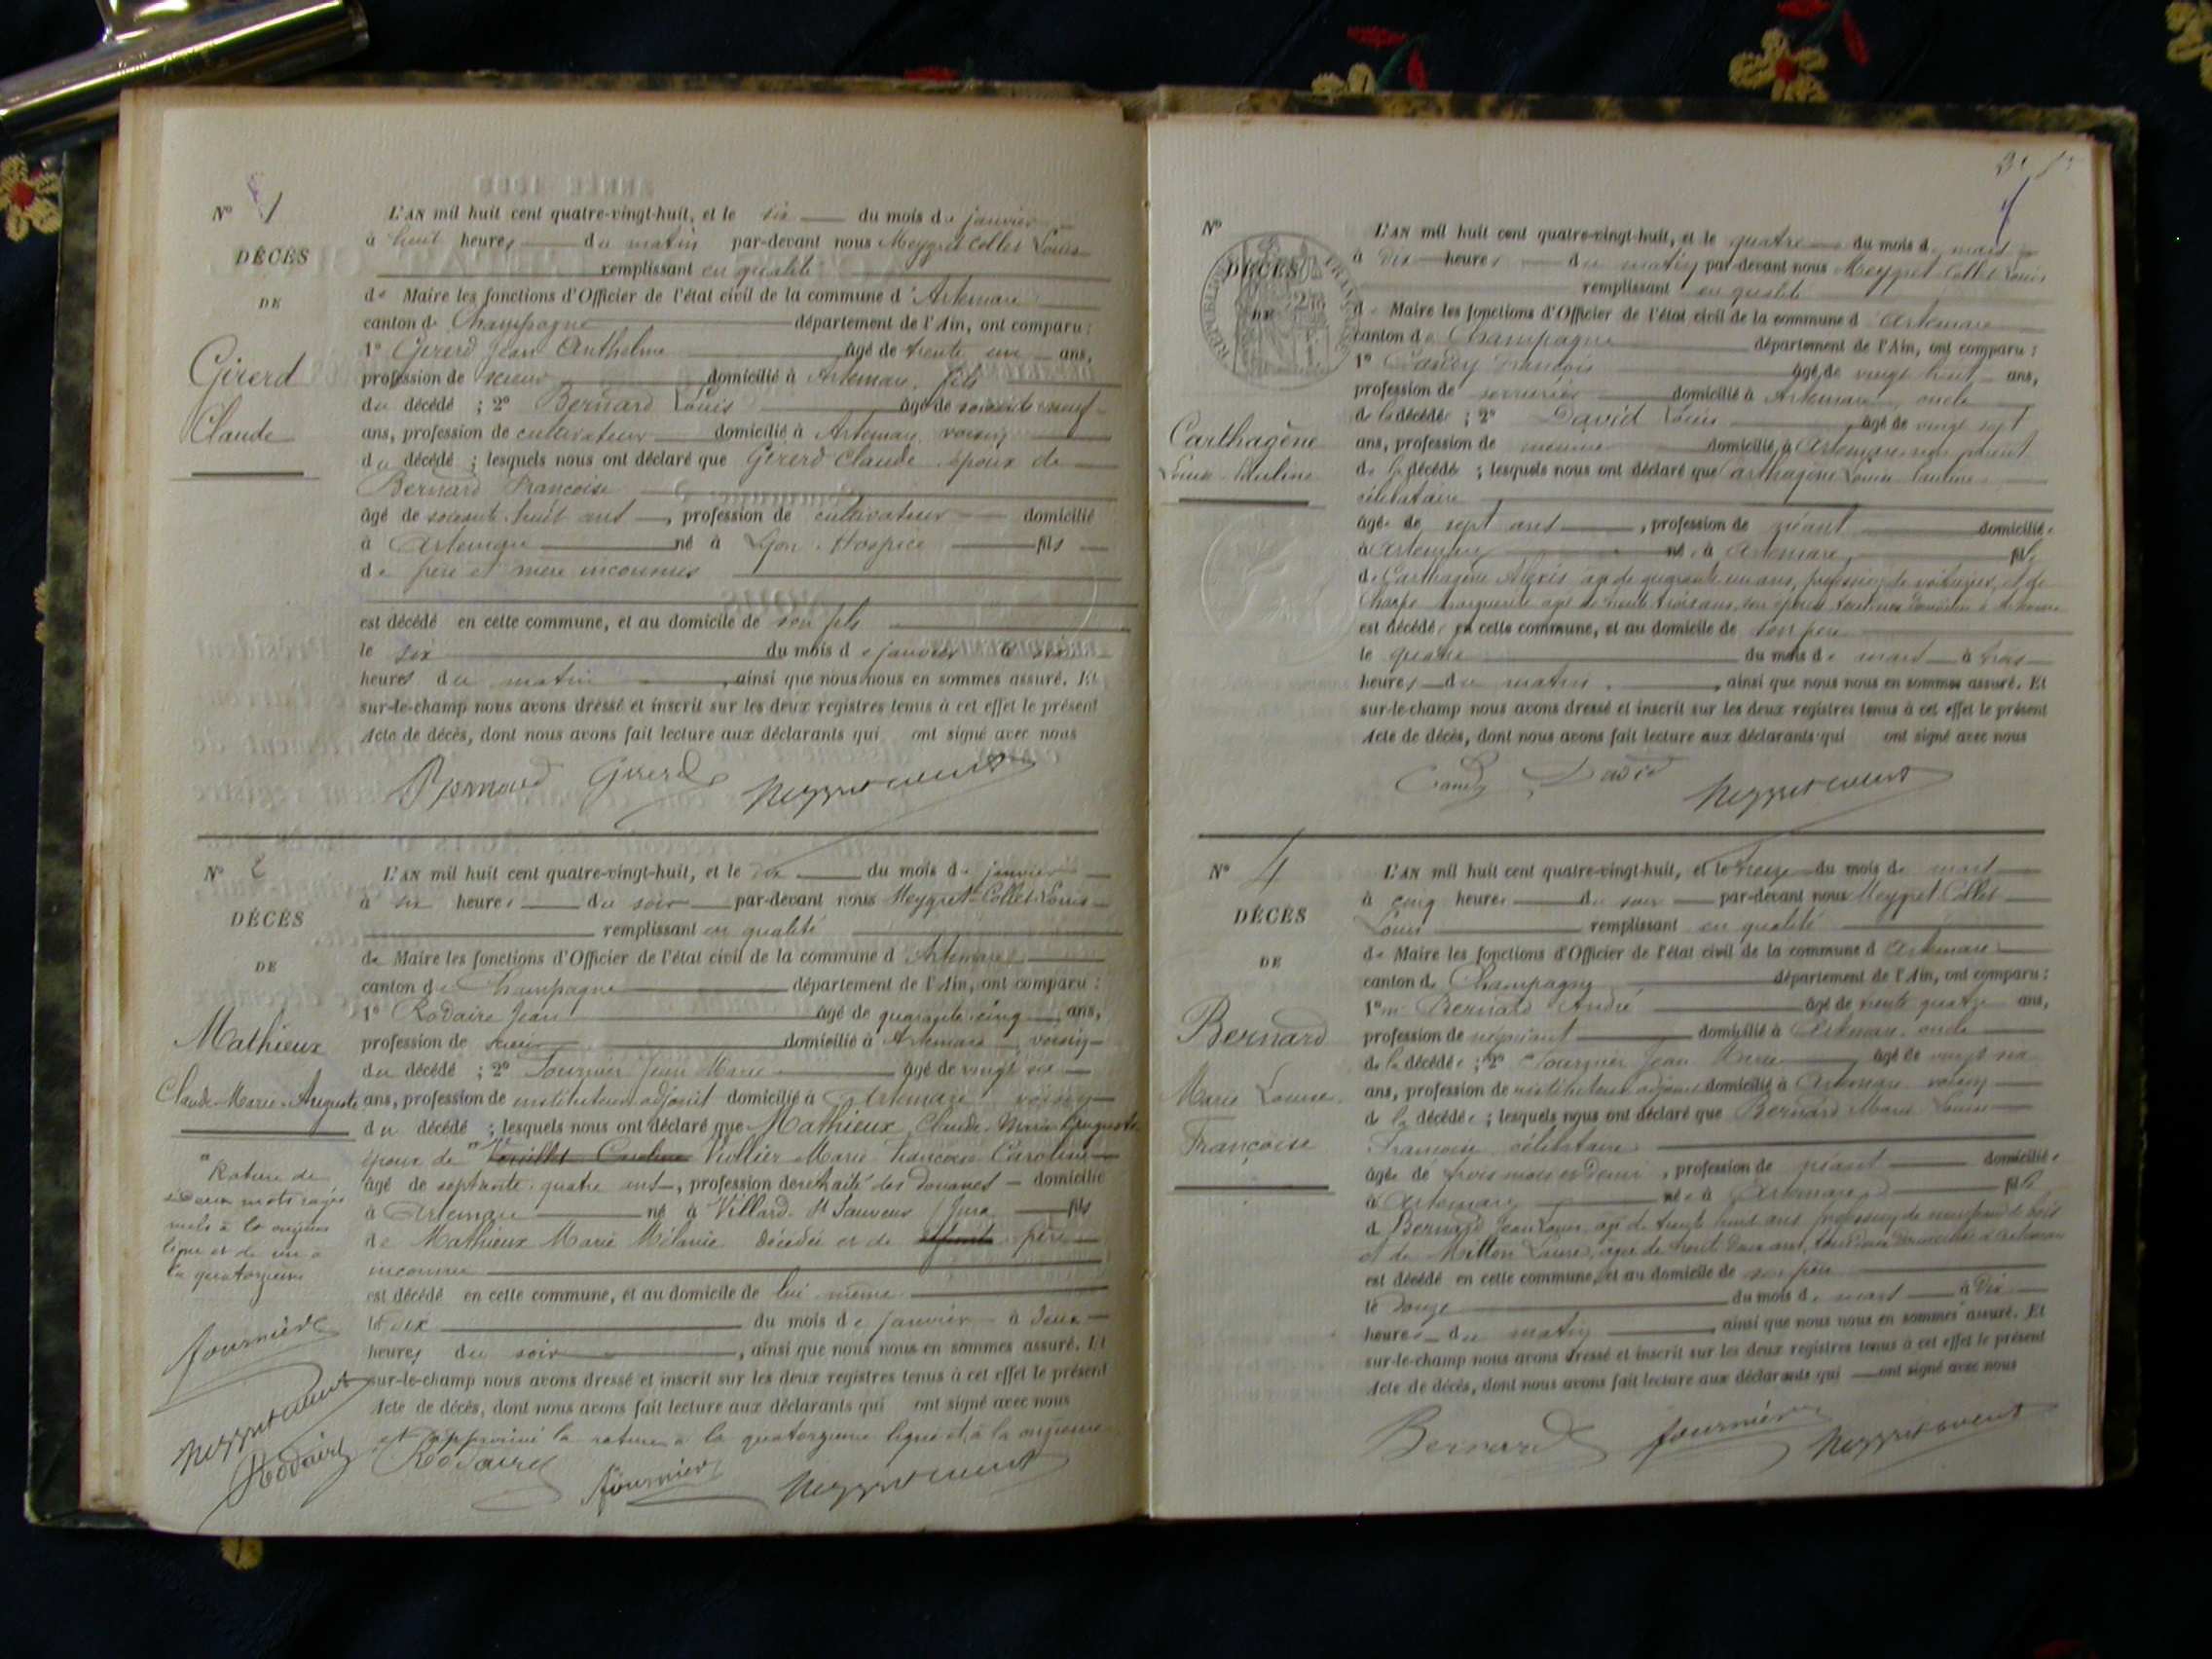 N° 1
DÉCÈS
DE
Girerd
Claude
L'AN mil huit cent quatre-vingt-huit, et le six du mois de janvier
à huit heures du matin par-devant nous Meygret Collet Louis
remplissant en qualité
de Maire les fonctions d'Officier de l'état civil de la commune d'Artemare
canton de Champagne département de l'Ain, ont comparu :
1° Girerd Jean Anthelme âgé de trente un ans,
profession de scieur domicilié à Artemare, fils
du décédé ; 2° Bernard Louis âgé de soixante neuf
ans, profession de cultivateur domicilié à Artemare, voisin
du décédé ; lesquels nous ont déclaré que Girerd Claude époux de
Bernard Françoise
âgé de soixante huit ans, profession de cultivateur domicilié
à Artemare né à Lyon Hospice fils
de père et mère inconnus
est décédé en cette commune, et au domicile de son fils
le six du mois de janvier à six
heures du matin, ainsi que nous nous en sommes assuré. Et
sur-le-champ nous avons dressé et inscrit sur les deux registres tenus à cet effet le présent
Acte de décès, dont nous avons fait lecture aux déclarants qui ont signé avec nous
Bernard Girerd Meygret Collet
N° 2
DÉCÈS
DE
Mathieux
Claude-Marie-Auguste
L'AN mil huit cent quatre-vingt-huit, et le dix du mois de janvier
à six heures du soir par-devant nous Meygret Collet Louis
remplissant en qualité
de Maire les fonctions d'Officier de l'état civil de la commune d Artemare
canton de Champagne département de l'Ain, ont comparu :
1° Rodaire Jean âgé de quarante cinq ans,
profession de scieur domicilié à Artemare voisin
du décédé ; 2° Fournier Jean Marie âgé de vingt six
ans, profession de instituteur adjoint domicilié à Artemare voisin
du décédé ; lesquels nous ont déclaré que Mathieux Claude Marie Auguste
époux de Caroline Viollier Marie Françoise Caroline
âgé de septante quatre ans, profession de retraité des Douanes domicilié
à Artemare né à Villard St Sauveur Jura fils
de Mathieux Marie Mélanie décédée et de père
inconnu
est décédé en cette commune, et au domicile de lui même
le dix du mois de janvier à deux
heures du soir, ainsi que nous nous en sommes assuré. Et
sur-le-champ nous avons dressé et inscrit sur les deux registres tenus à cet effet le présent
Acte de décès, dont nous avons fait lecture aux déclarants qui ont signé avec nous
et approuvé la rature à la quatorzième ligne et à la onzième
Rodaire Fournier Meygret Collet
Rature de
deux mots rayés
nuls à la onzième
ligne et de un à
la quatorzième
Fournier
Meygret Collet
Rodaire
N°
DÉCÈS
DE
Carthagène
Louise Pauline
L'AN mil huit cent quatre-vingt-huit, et le quatre du mois de mars
à dix heures du matin par-devant nous Meygret Collet Louis
remplissant en qualité
de Maire les fonctions d'Officier de l'état civil de la commune d Artemare
canton de Champagne département de l'Ain, ont comparu :
1° François âgé de vingt huit ans,
profession de serrurier domicilié à Artemare, oncle
de la décédée ; 2° David Louis âgé de vingt sept
ans, profession de domicilié à Artemare non parent
de la décédée ; lesquels nous ont déclaré que Carthagène Louise Pauline
célibataire
âgée de sept ans, profession de néant domiciliée
à Artemare née à Artemare fille
de Carthagène Alexis âgé de quarante un ans, profession de voiturier, et de
Marguerite âgée de trente trois ans, son épouse domiciliés à Artemare
est décédée en cette commune, et au domicile de son père
le quatre du mois de mars à trois
heures du matin, ainsi que nous nous en sommes assuré. Et
sur-le-champ nous avons dressé et inscrit sur les deux registres tenus à cet effet le présent
Acte de décès, dont nous avons fait lecture aux déclarants qui ont signé avec nous
David Meygret Collet
N° 4
DÉCÈS
DE
Bernard
Marie Louise
Françoise
L'AN mil huit cent quatre-vingt-huit, et le treize du mois de mars
à cinq heures du soir par-devant nous Meygret Collet
Louis remplissant en qualité
de Maire les fonctions d'Officier de l'état civil de la commune d Artemare
canton de Champagne département de l'Ain, ont comparu :
1° Bernard André âgé de trente quatre ans,
profession de négociant domicilié à Artemare oncle
de la décédée ; 2° Fournier Jean Marie âgé de vingt six
ans, profession de instituteur adjoint domicilié à Artemare voisin
de la décédée ; lesquels nous ont déclaré que Bernard Marie Louise
Françoise célibataire
âgée de trois mois et demi, profession de néant domiciliée
à Artemare née à Artemare fille
d Bernard Jean Louis âgé de trente huit ans profession de marchand de bois
et de Mitton Louise, âgée de trente deux ans, tous deux domiciliés à Artemare
est décédé en cette commune, et au domicile de son père
le douze du mois de mars à dix
heures du matin, ainsi que nous nous en sommes assuré. Et
sur-le-champ nous avons dressé et inscrit sur les deux registres tenus à cet effet le présent
Acte de décès, dont nous avons fait lecture aux déclarants qui ont signé avec nous
Bernard Fournier Meygret Collet